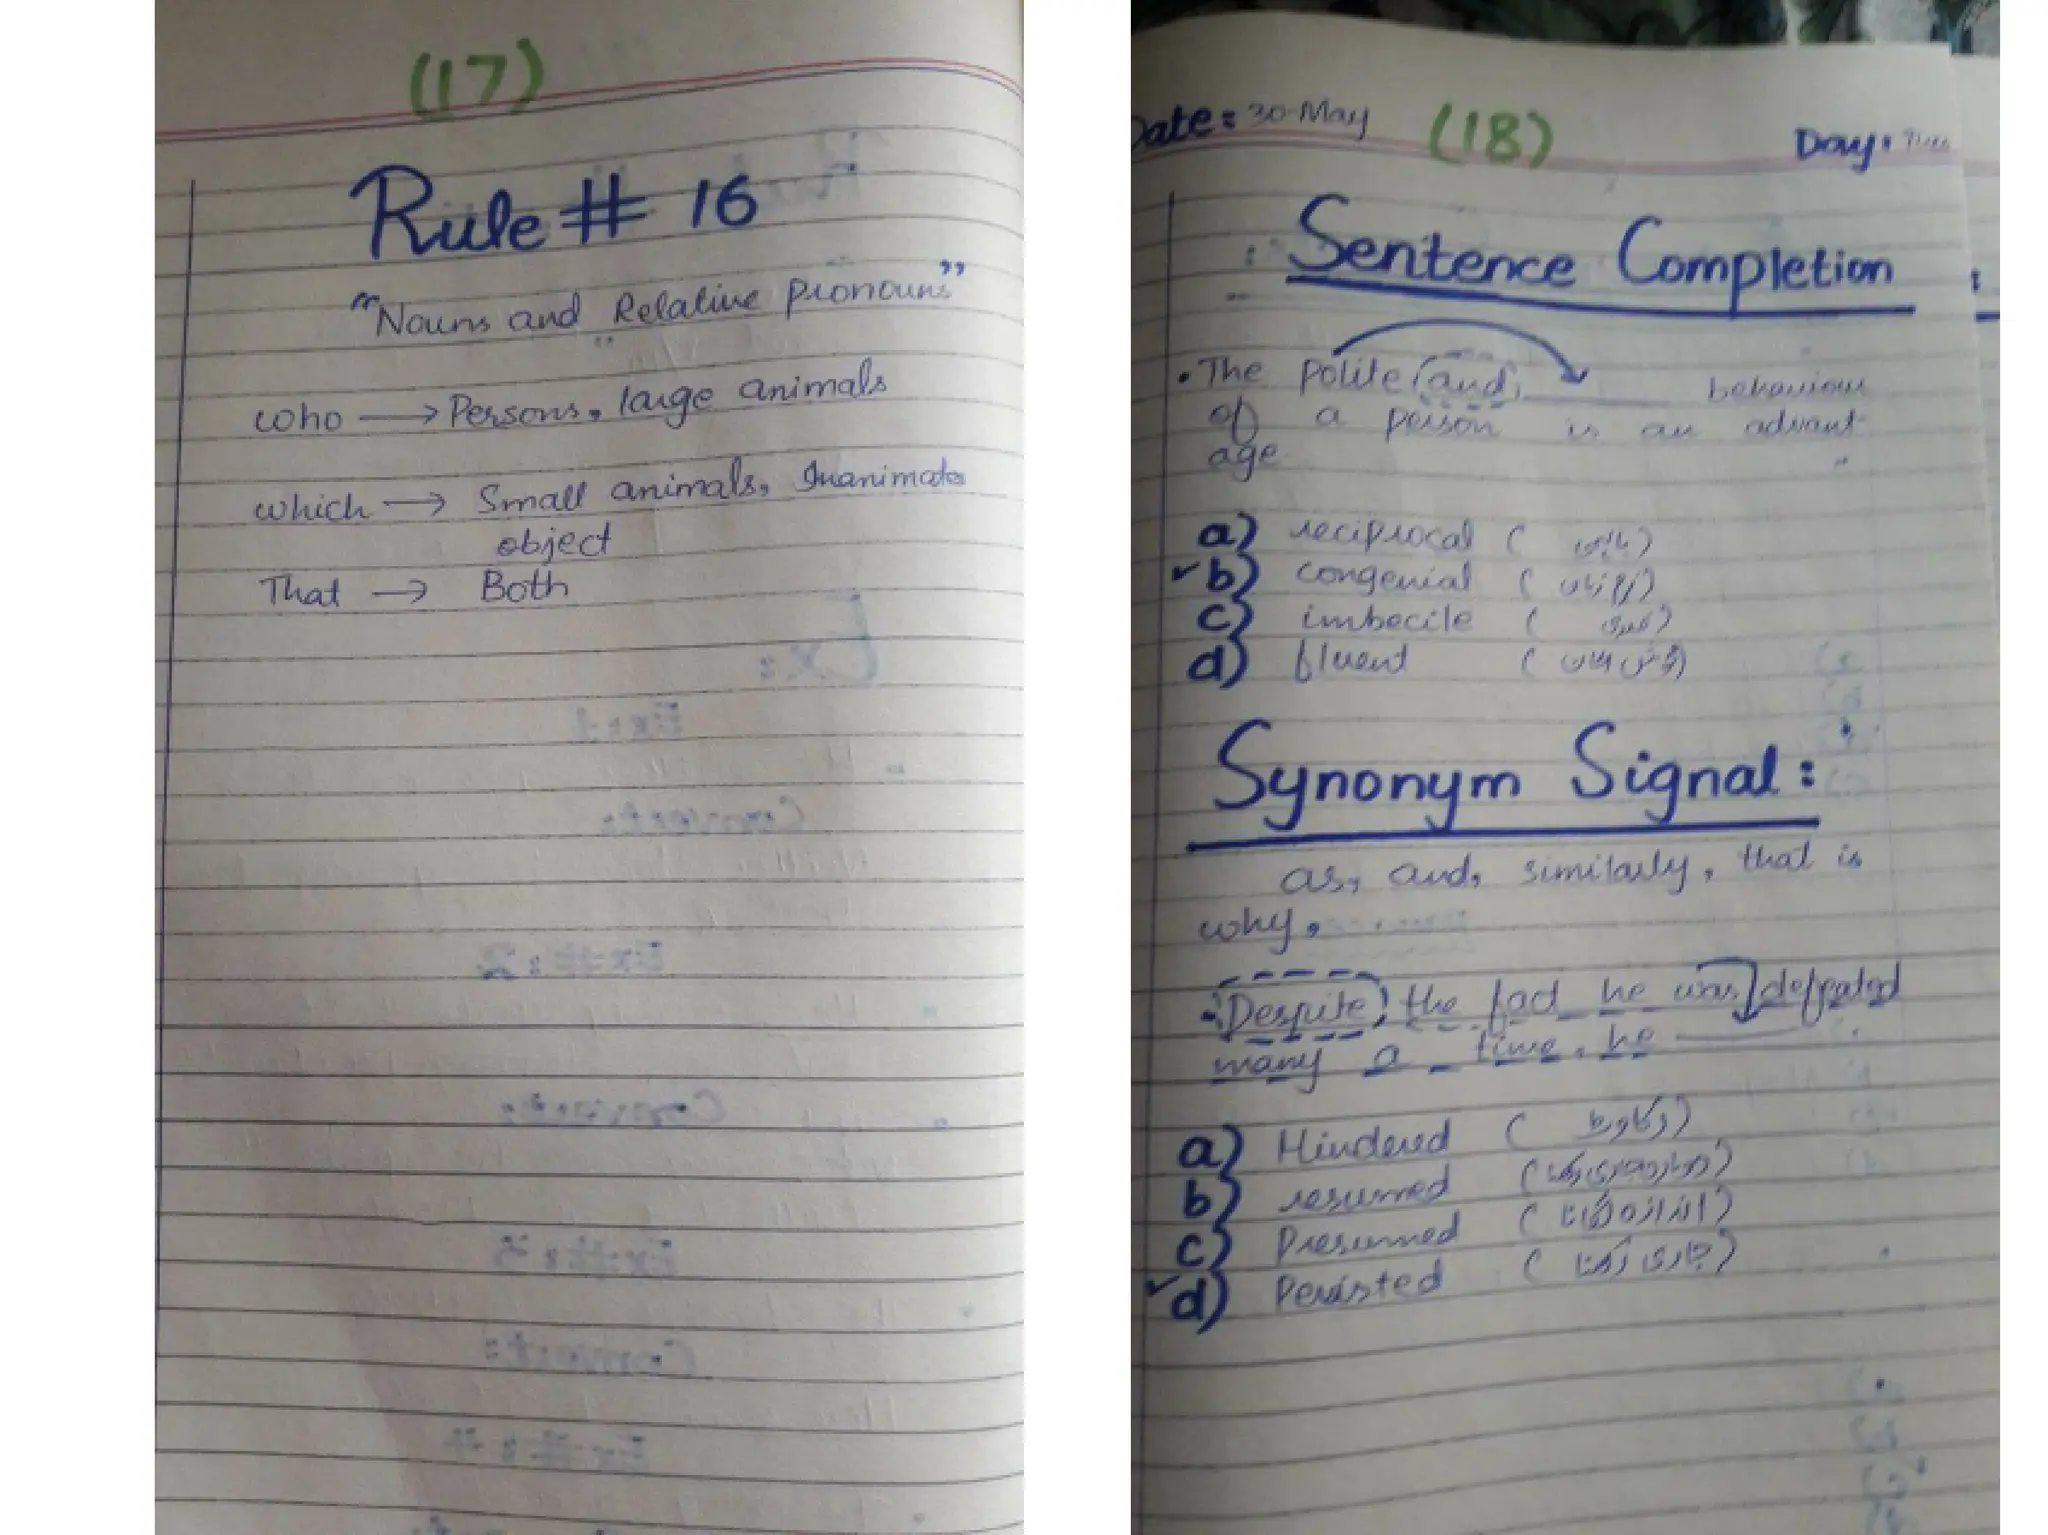 (17)
Rule # 16
"Nouns and Relative pronouns"
who → Persons, large animals
which → Small animals, Inanimates
object
That → Both
Date: 30-May (18) Day:
Sentence Completion
• The polite (and) ______ behaviour
of a person is an advant
age
a) reciprocal (باہمی)
✓ b) congenial
c) imbecile
d) fluent
Synonym Signal:
as, and, similarly, that is
why,
• Despite the fact he was defeated
many a time, he ______
a) Hindered (رکاوٹ)
b) resumed
c) Presumed (اندازہ لگانا)
✓ d) Persisted (جاری رکھنا)